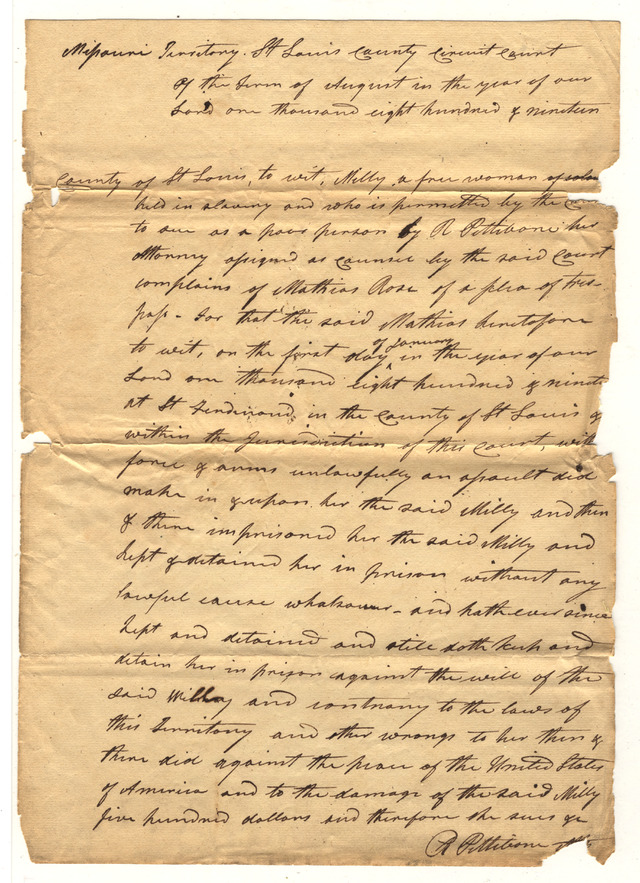 Missouri Territory. St Louis County Circuit Court
Of the Term of August in the year of our
Lord one thousand eight hundred & nineteen
County of St Louis, to wit, Milly a free woman of color
held in slavery and who is permitted by the
to sue as a poor person by R Pettibone her
Attorney assigned as counsel by the said Court
complains of Mathias Rose of a plea of tres-
pass - For that the said Mathias heretofore
to wit, on the first day of January in the year of our
Lord one thousand eight hundred & ninete
at St Ferdinand in the County of St Louis &
within the Jurisdiction of this Court, with
force & arms unlawfully an assault did
make in & upon her the said Milly and then
& there imprisoned her the said Milly and
kept & detained her in prison without any
lawful cause whatsoever - and hath ever since
kept and detained and still doth keep and
detain her in prison against the will of the
said Milly and contrary to the laws of
this Territory and other wrongs to her then &
there did against the peace of the United States
of America and to the damage of the said Milly
five hundred dollars and therefore she sues &c
R Pettibone